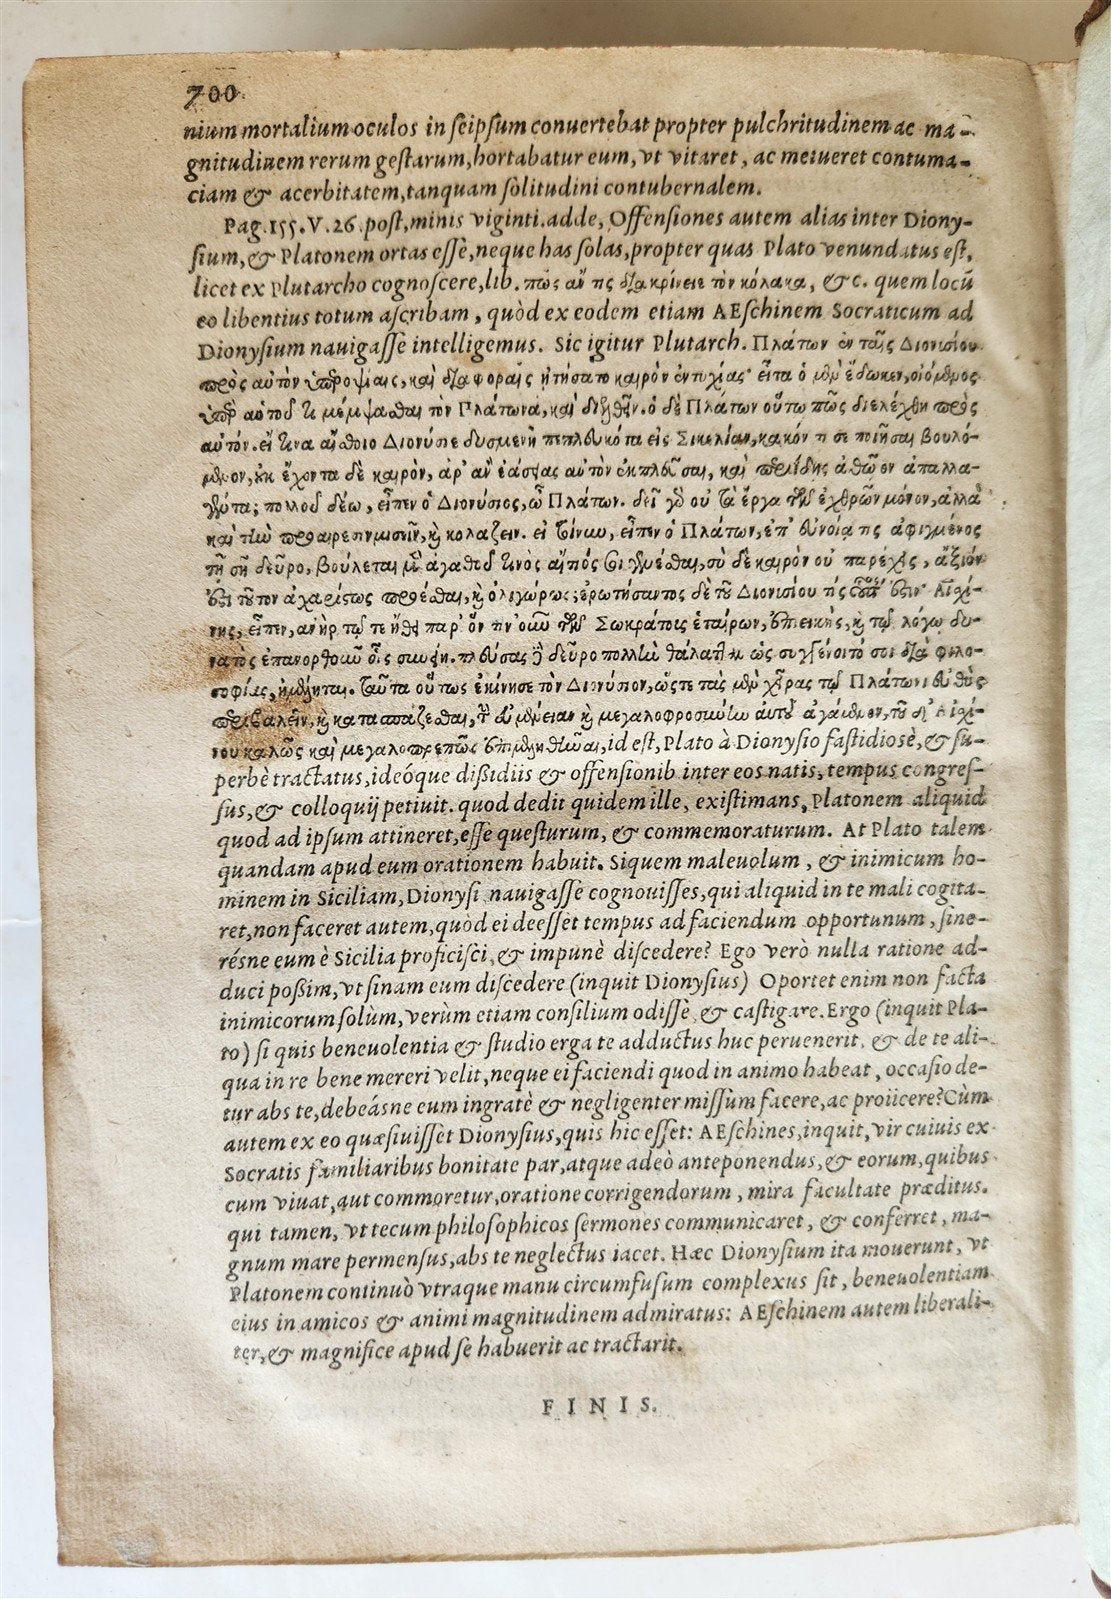 700
nium mortalium oculos in seipsum conuertebat propter pulchritudinem ac ma-
gnitudinem rerum gestarum, hortabatur eum, vt vitaret, ac metueret contuma-
ciam & acerbitatem, tanquam solitudini contubernalem.
Pag. 155. V. 26. post, minis viginti. adde, Offensiones autem alias inter Diony-
sium, & Platonem ortas esse, neque has solas, propter quas Plato venundatus est,
licet ex Plutarcho cognoscere, lib. πῶς ἄν τις διακρίνειε τὸν κόλακα, &c. quem locū
eo libentius totum ascribam, quòd ex eodem etiam AEschinem Socraticum ad
Dionysium nauigasse intelligemus. Sic igitur Plutarch. Πλάτων ἐν ταῖς Διονισίου
πρὸς αὐτὸν ὑπεροψίαις, καὶ διαφοραῖς ᾐτήσατο καιρὸν ἐντυχίας· εἶτα ὁ μὲν ἔδωκεν, οἰόμενος
ὑπὲρ αὑτοῦ τι μέμψασθαι τὸν Πλάτωνα, καὶ διελθεῖν. ὁ δὲ Πλάτων οὕτω πῶς διελέχθη πρὸς
αὐτόν. εἴ τινα αἴσθοιο Διονύσιε δυσμενῆ πεπλευκότα εἰς Σικελίαν, κακόν τι σε ποιῆσαι βουλό-
μενον, οὐκ ἔχοντα δὲ καιρὸν, ἆρ' ἂν ἐάσειας αὐτὸν ἐκπλεῦσαι, καὶ περιίδῃς ἀθῷον ἀπαλλα-
γέντα; πολλοῦ δέω, εἶπεν ὁ Διονύσιος, ὦ Πλάτων. δεῖ γὰρ οὐ τὰ ἔργα τῶν ἐχθρῶν μόνον, ἀλλὰ
καὶ τὴν προαίρεσιν μισεῖν, καὶ κολάζειν. εἰ τοίνυν, εἶπεν ὁ Πλάτων, ἐπ' εὐνοίᾳ τις ἀφιγμένος
τῇ σῇ δεῦρο, βούλεται μὲν ἀγαθοῦ τινὸς αἴτιός σοι γενέσθαι, σὺ δὲ καιρὸν οὐ παρέχεις, ἄξιόν
ἐστι τοῦτον ἀχαρίστως προέσθαι, καὶ ὀλιγώρως; ἐρωτήσαντος δὲ τοῦ Διονισίου τίς οὗτός ἐστιν· Αἰσχί-
νης, εἶπεν, ἀνὴρ τῷ τε ἤθει παρ' ὃν τιν' οὖν τῶν Σωκράτοις ἑταίρων, ἐπιεικὴς, καὶ τῷ λόγῳ δυ-
νατὸς ἐπανορθοῦν οἷς συνῇη. πλεύσας δὲ δεῦρο πολλὴν θάλατταν ὡς συγγένοιτό σοι διὰ φιλο-
σοφίας, ἠμέληται. Ταῦτα οὕτως ἐκίνησε τὸν Διονύσιον, ὥστε τὰς μὲν χεῖρας τῷ Πλάτωνι εὐθὺς
περιβαλεῖν, καὶ κατασπάζεσθαι, τὴν εὐμένειαν καὶ μεγαλοφροσύνην αὐτοῦ ἀγάμενον, τοῦ δ' Αἰσχί-
νου καλῶς καὶ μεγαλοπρεπῶς ἐπιμεληθῆναι, id est, Plato à Dionysio fastidiosè, & su-
perbè tractatus, ideóque dißidiis & offensionib inter eos natis, tempus congres-
sus, & colloquij petiuit. quod dedit quidem ille, existimans, Platonem aliquid
quod ad ipsum attineret, esse questurum, & commemoraturum. At Plato talem
quandam apud eum orationem habuit. Siquem maleuolum, & inimicum ho-
minem in Siciliam, Dionysi nauigasse cognouisses, qui aliquid in te mali cogita-
ret, non faceret autem, quòd ei deesset tempus ad faciendum opportunum, sine-
résne eum è Sicilia proficisci, & impunè discedere? Ego verò nulla ratione ad-
duci poßim, vt sinam eum discedere (inquit Dionysius) Oportet enim non facta
inimicorum solùm, verùm etiam consilium odisse & castigare. Ergo (inquit Pla-
to) si quis beneuolentia & studio erga te adductus huc peruenerit, & de te ali-
qua in re bene mereri velit, neque ei faciendi quod in animo habeat, occasio de-
tur abs te, debeásne eum ingratè & negligenter missum facere, ac proiicere? Cùm
autem ex eo quæsiuisset Dionysius, quis hic esset: AEschines, inquit, vir cuiuis ex
Socratis familiaribus bonitate par, atque adeò anteponendus, & eorum, quibus
cum viuat, aut commoretur, oratione corrigendorum, mira facultate præditus.
qui tamen, vt tecum philosophicos sermones communicaret, & conferret, ma-
gnum mare permensus, abs te neglectus iacet. Hæc Dionysium ita mouerunt, vt
Platonem continuò vtraque manu circumfusum complexus sit, beneuolentiam
eius in amicos & animi magnitudinem admiratus: AEschinem autem liberali-
ter, & magnifice apud se habuerit ac tractarit.
FINIS.